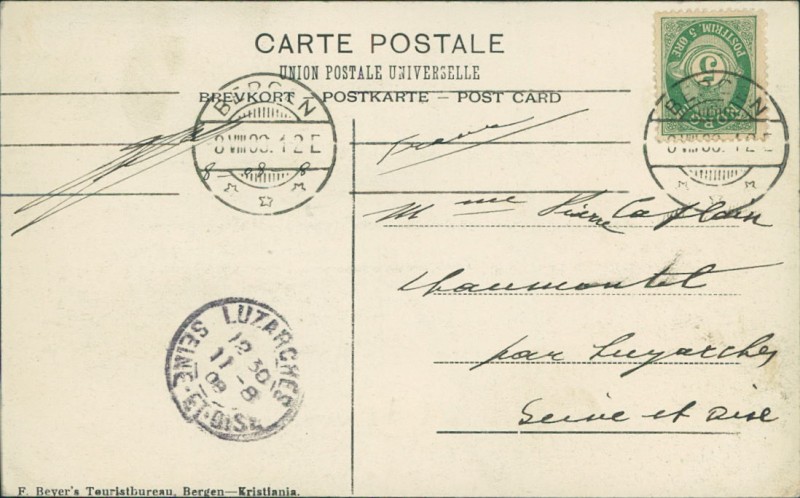 CARTE POSTALE
UNION POSTALE UNIVERSELLE
BREVKORT – POSTKARTE – POST CARD
POSTFRIM. 5 ØRE
NORGE
5
BERGEN
8 VIII 08. 12 E
BERGEN
8 VIII 08. 12 E
8 - 08 - 8
France
Mme Pierre Caplain
Chaumontel
par Luzarches
Seine et Oise
LUZARCHES
12 30
11 - 8
08
SEINE-ET-OISE
F. Beyer's Touristbureau, Bergen—Kristiania.